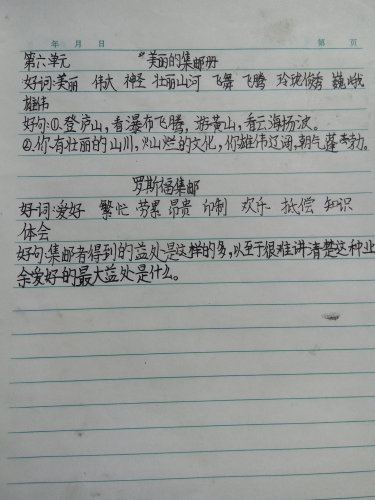 年 月 日 第 页
第六单元 “美丽的集邮册
好词:美丽 伟大 神圣 壮丽山河 飞舞 飞腾 玲珑俊秀 巍峨
雄伟
好句:①.登庐山,看瀑布飞腾,游黄山,看云海扬波。
②.你有壮丽的山川,灿烂的文化,你雄伟辽阔,朝气蓬勃。
罗斯福集邮
好词:爱好 繁忙 劳累 昂贵 印制 欢乐 抵偿 知识
体会
好句:集邮者得到的益处是这样的多,以至于很难讲清楚这种业
余爱好的最大益处是什么。